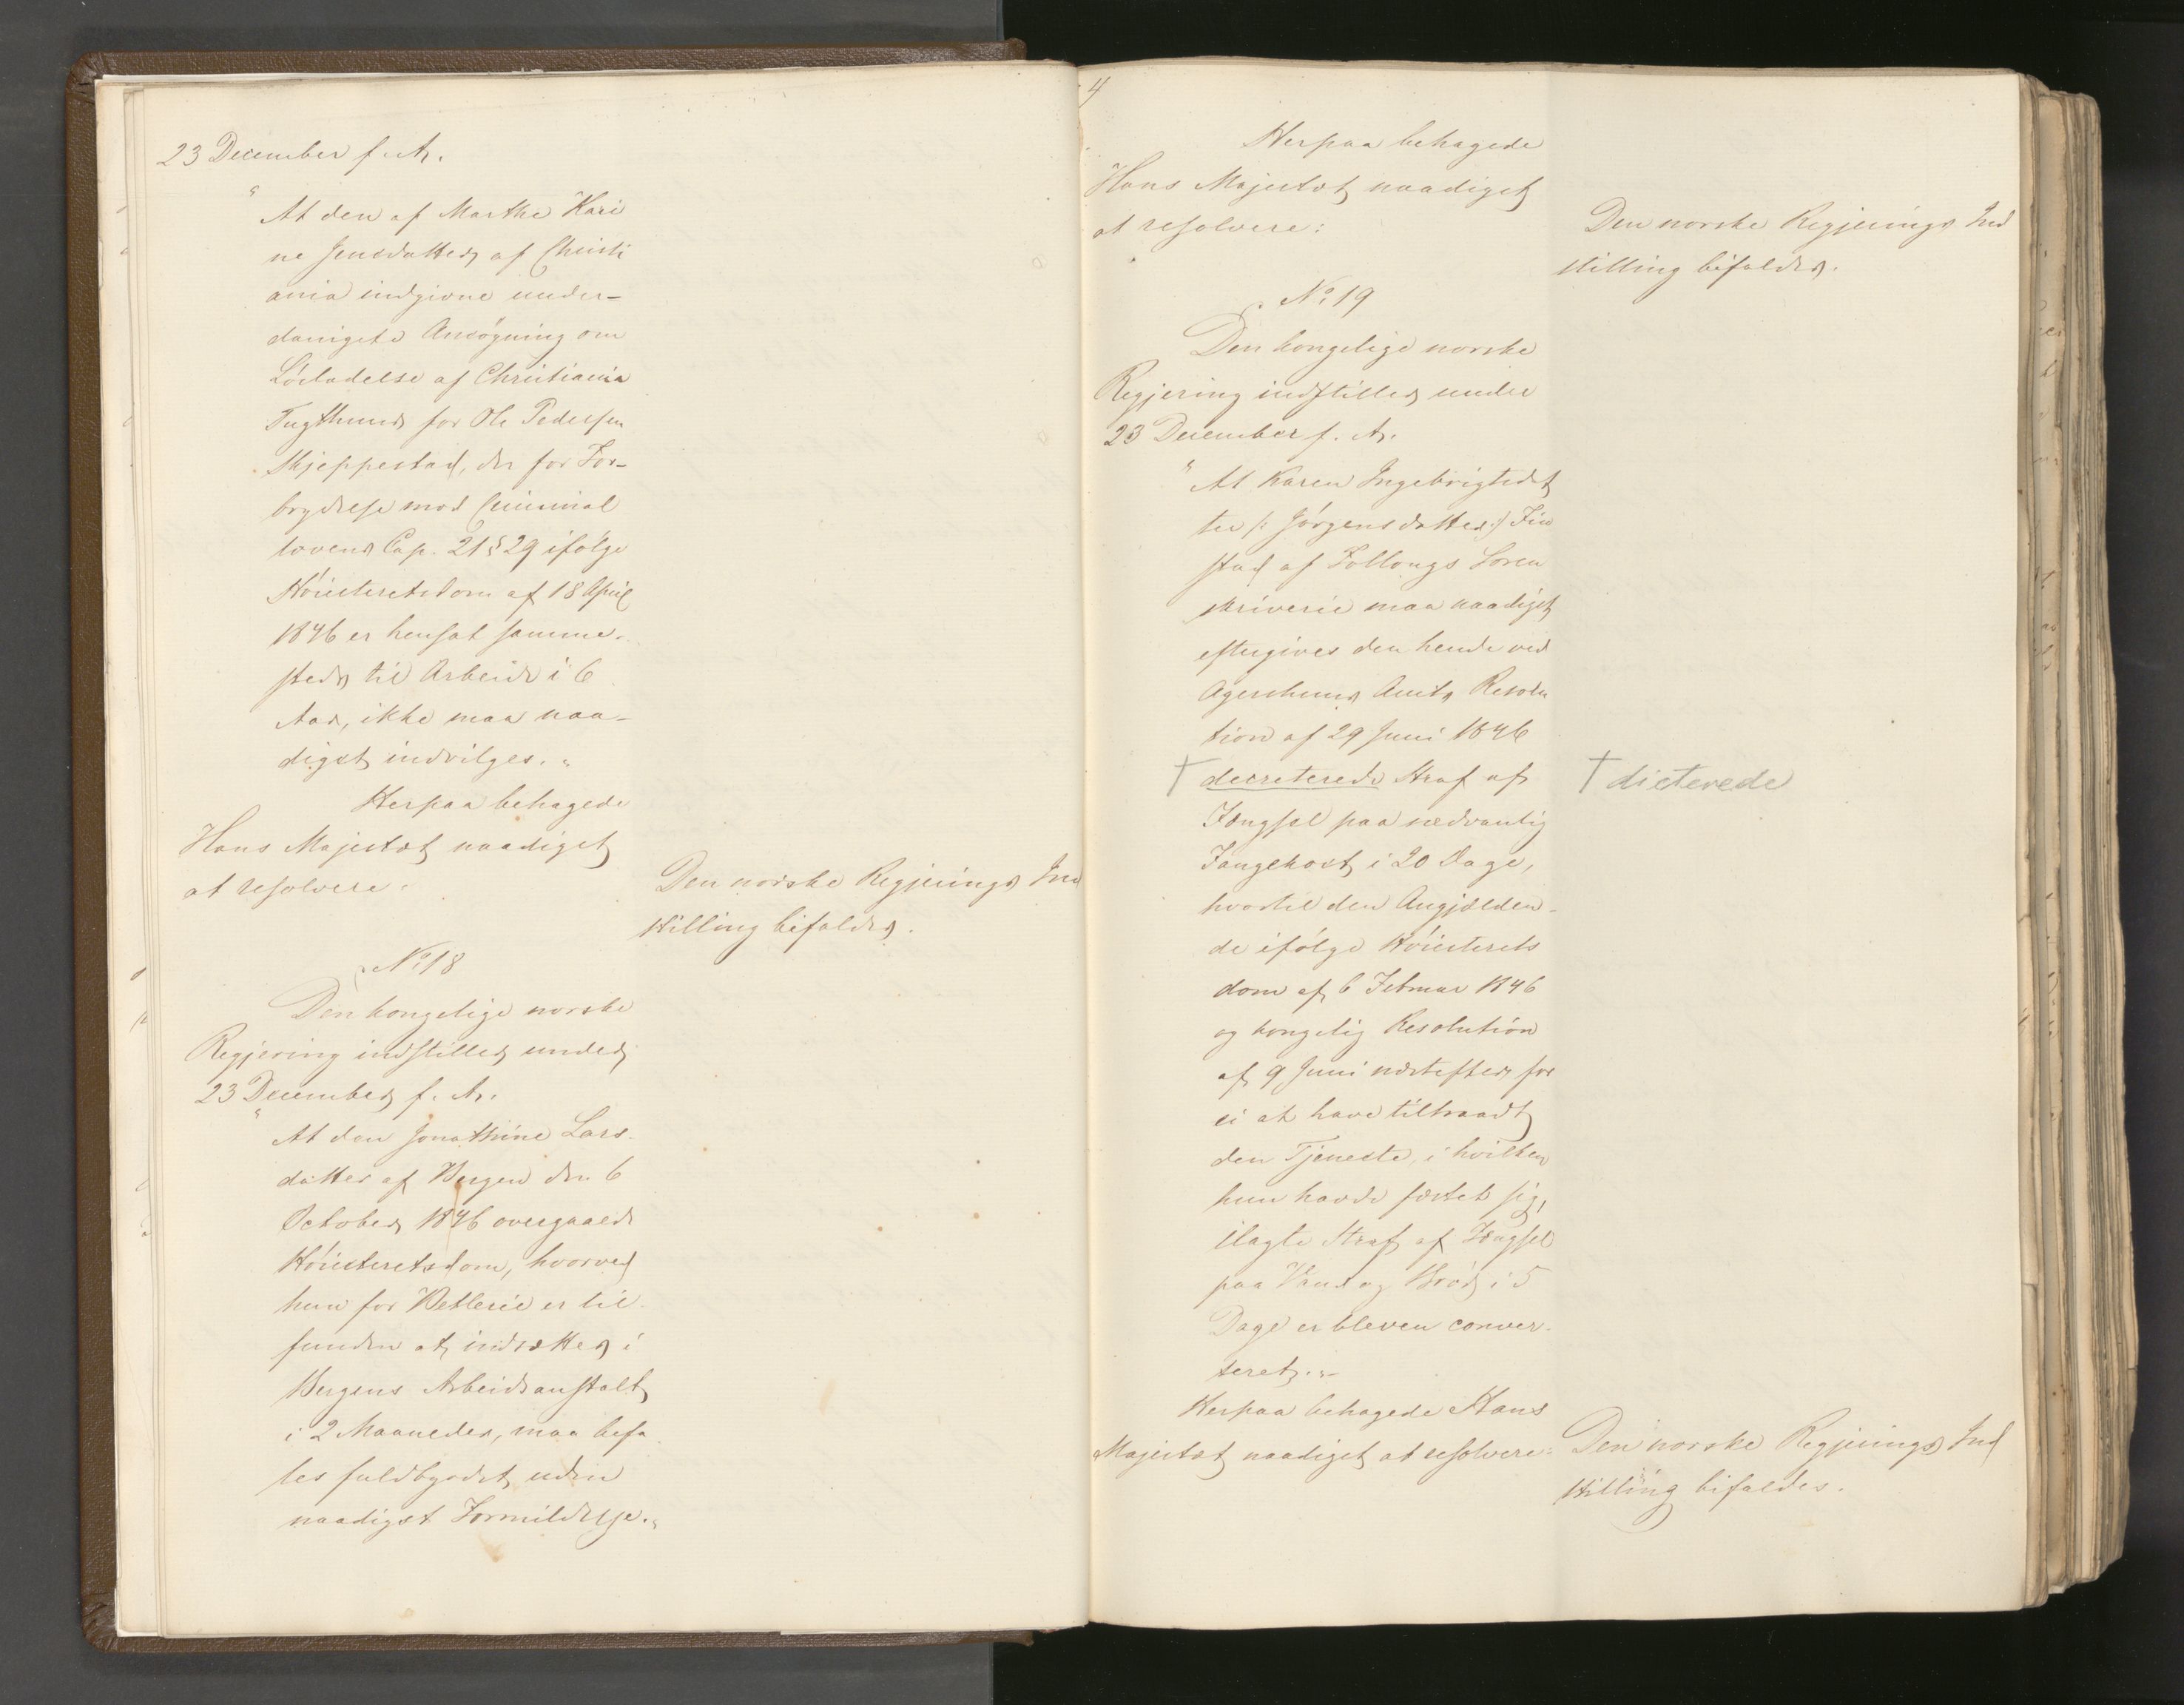 23 December f. A.
"At den af Marthe Kari
ne Jensdatter af Christi
ania indgivne under-
danigste Ansøgning om
Løsladelse af Christiania
Tugthuus for Ole Pedersen
Skjeppestad, der for For-
brydelse mod Criminal
lovens Cap. 21 § 29 ifølge
Høiesteretsdom af 18 April
1846 er hensat samme-
steds til Arbeide i 6
Aar, ikke maa naa-
digst indvilges."
Herpaa behagede
Hans Majestæt naadigst
at resolvere:
Den norske Regjerings Ind
stilling bifaldes.
No. 18
Den kongelige norske
Regjering indstiller under
23 December f. A.
"At den Jonathine Lars-
datter af Bergen den 6
October 1846 overgaaede
Høiesteretsdom, hvorved
hun for Betlerie er til-
funden at indsættes i
Bergens Arbeidsanstalt
i 2 Maaneder, maa befa
les fuldbyrdet uden
naadigst Formildelse."
4
Herpaa behagede
Hans Majestæt naadigst
at resolvere:
Den norske Regjerings Ind
stilling bifaldes.
No. 19
Den kongelige norske
Regjering indstiller under
23 December f. A.
"At Karen Ingebrigtsdat
ter /: Jørgensdatter :/ Fin
stad af Follougs Soren
skriverie maa naadigst
eftergives den hende ved
Agershuus Amts Resolu
tion af 29 Juni 1846
† decreterede Straf af
† dicterede
Fængsel paa sædvanlig
Fangekost i 20 Dage,
hvortil den Angjælden-
de ifølge Høiesterets
dom af 6 Februar 1846
og kongelig Resolution
af 9 Juni næstefter for
ei at have tiltraadt
den Tjeneste, i hvilken
hun havde fæstet sig,
ilagte Straf af Fængsel
paa Vand og Brød i 5
Dage er bleven conver-
teret."
Herpaa behagede Hans
Majestæt naadigst at resolvere:
Den norske Regjerings Ind
stilling bifaldes.